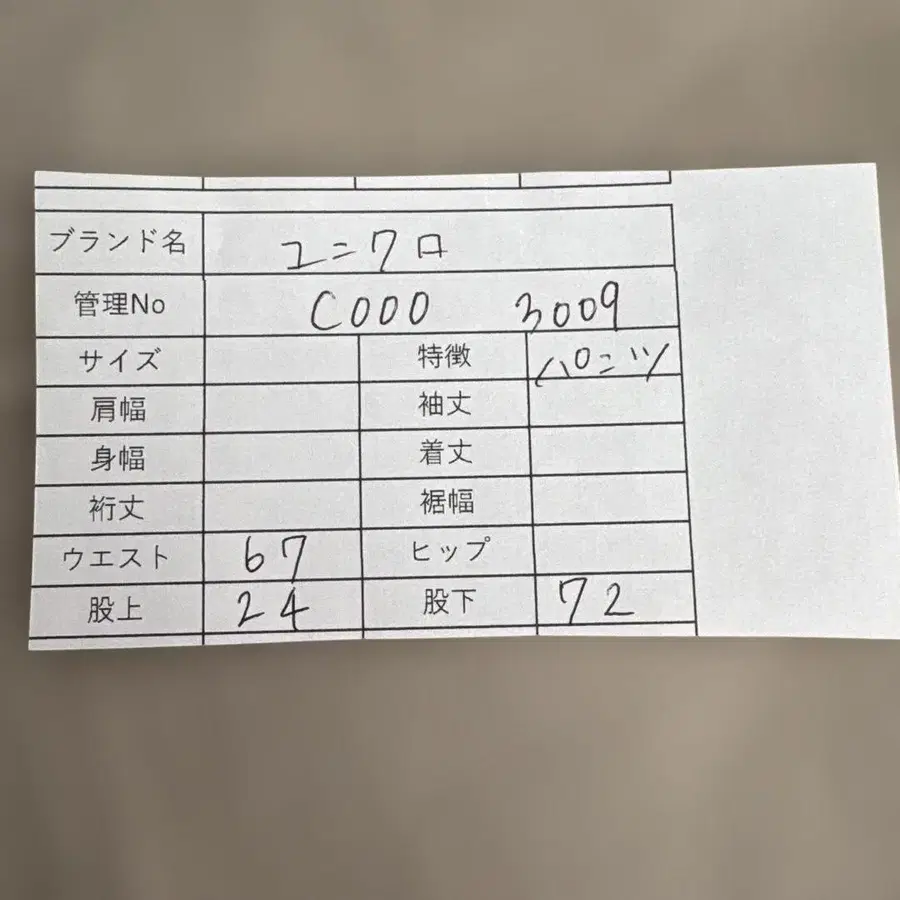 ブランド名 ユニクロ
管理No C000 3009
サイズ 特徴 パンツ
肩幅 袖丈
身幅 着丈
裄丈 裾幅
ウエスト 67 ヒップ
股上 24 股下 72